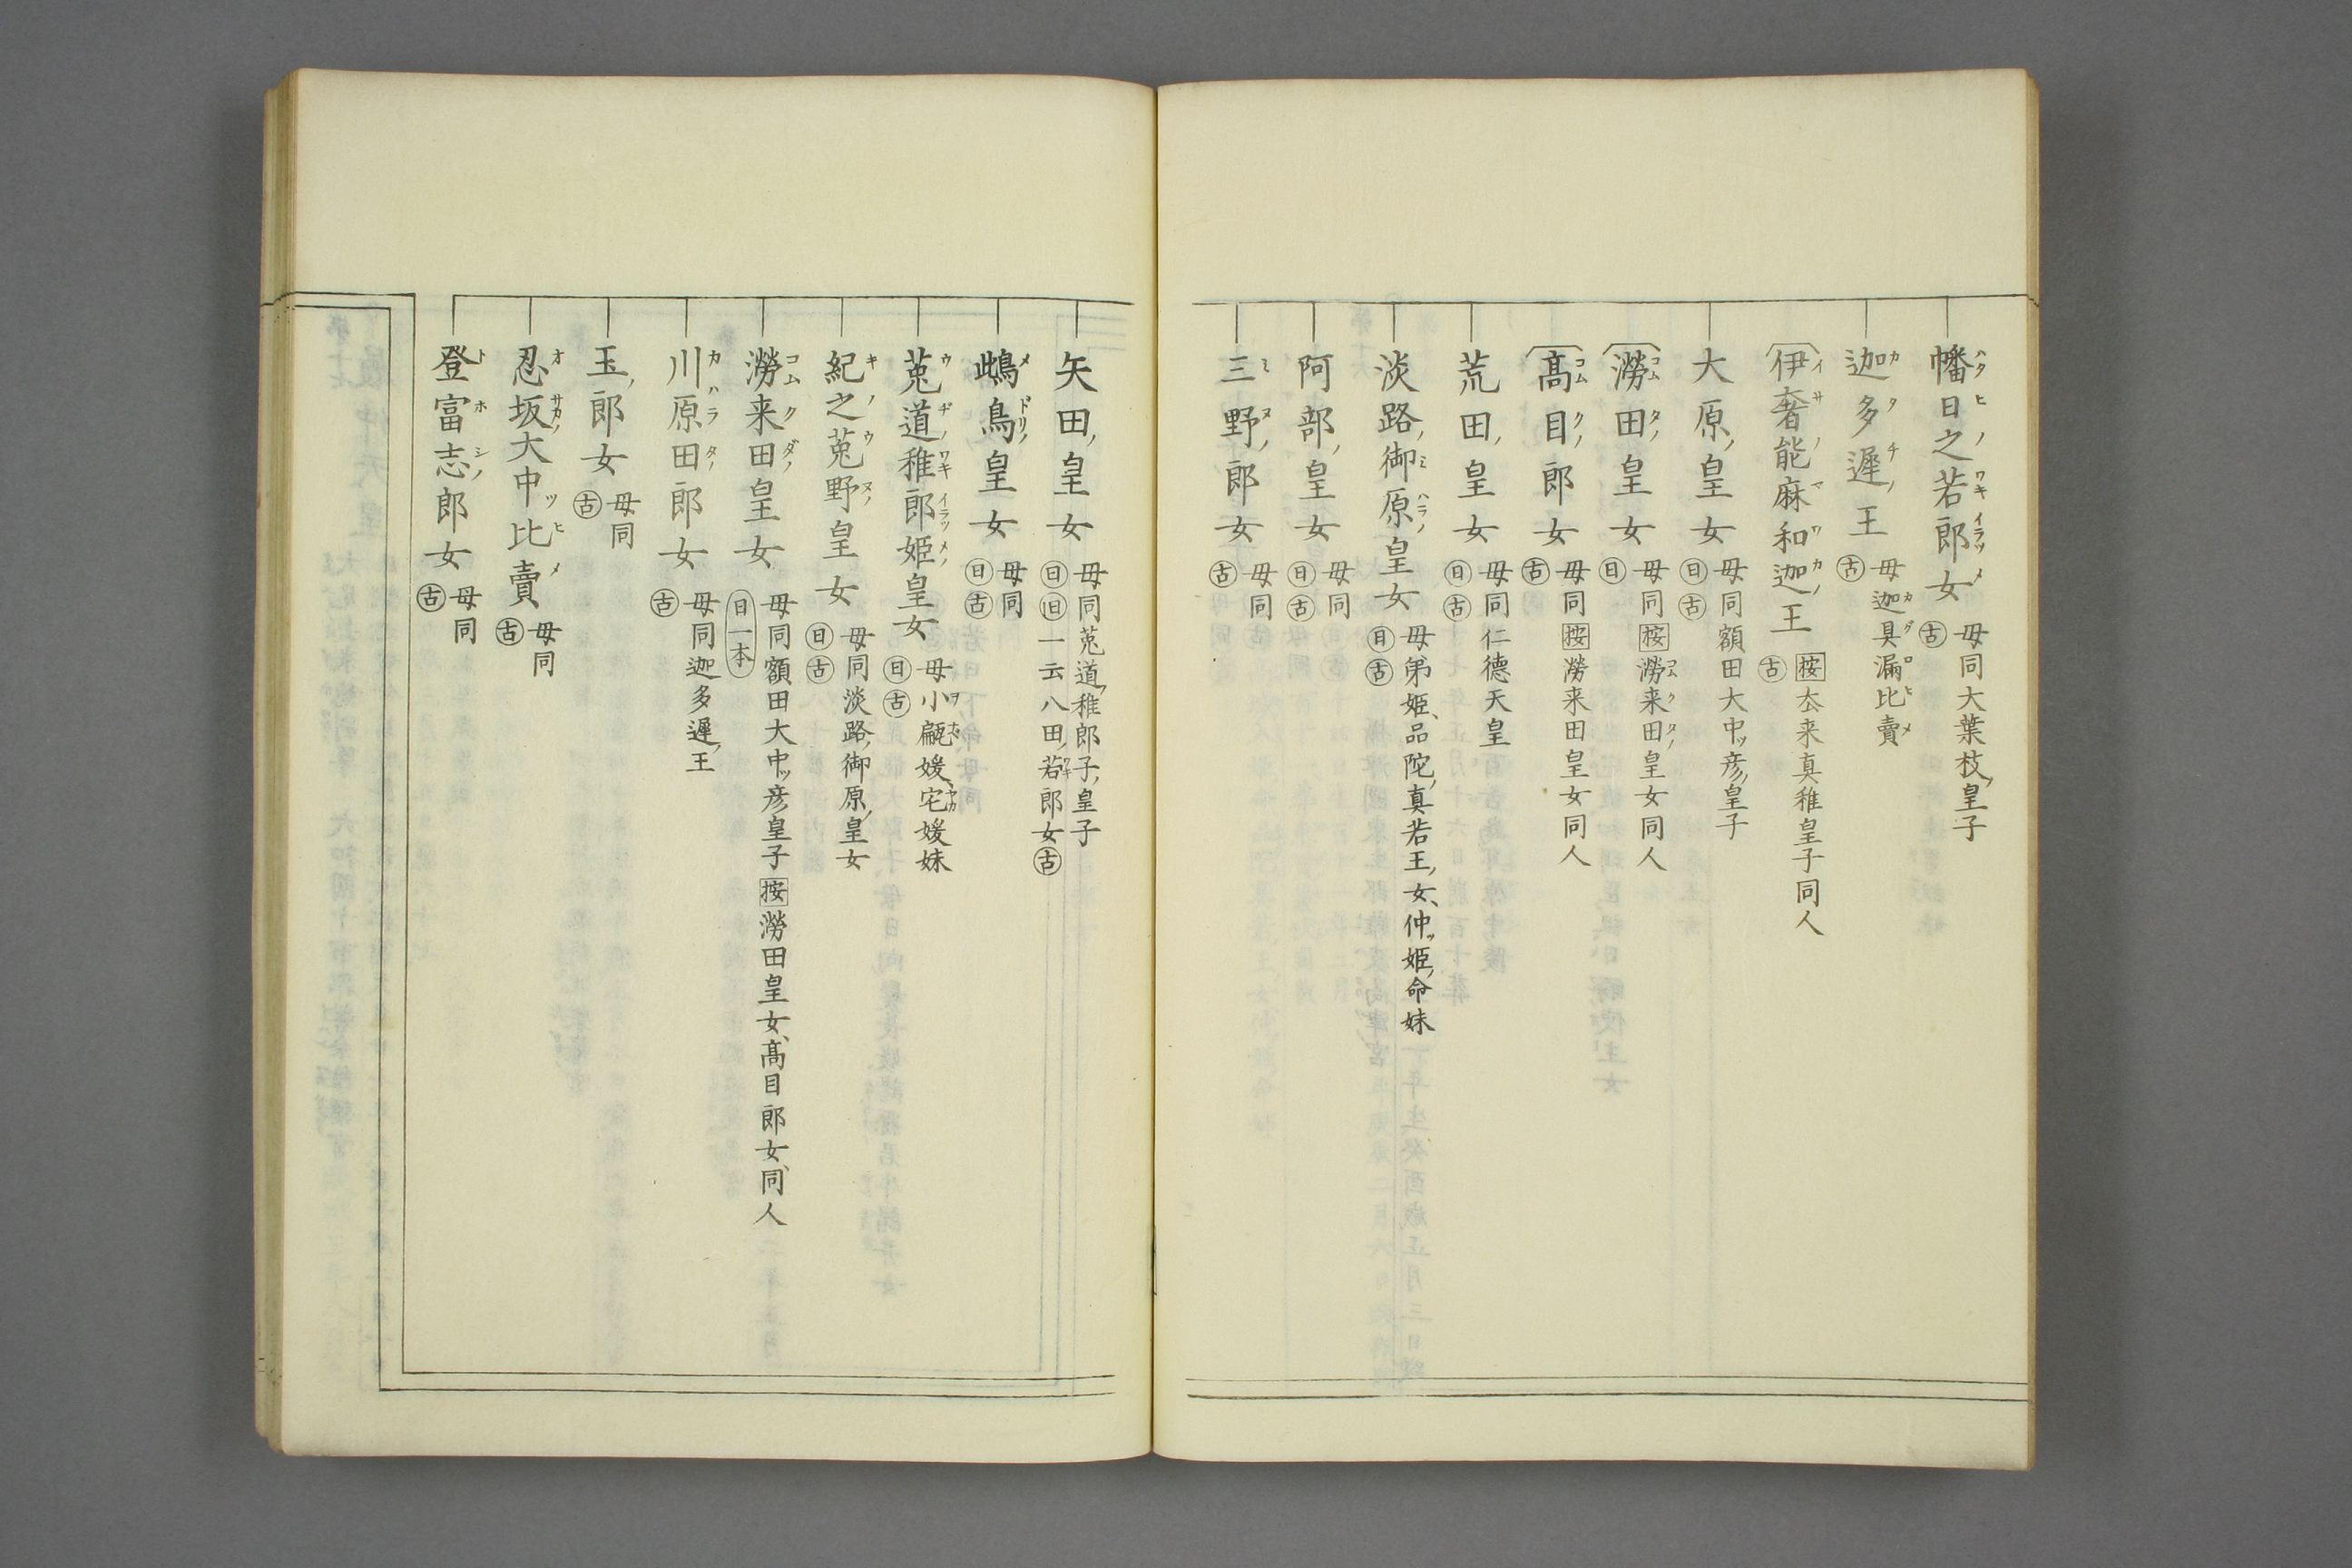 幡日之若郎女 母同大葉枝皇子 古
迦多遲王 母迦具漏比賣 古
伊奢能麻和迦王 按厺来真稚皇子同人 古
大原皇女 母同額田大中彦皇子 日 古
澇田皇女 母同 按澇来田皇女同人 日
髙目郎女 母同 按澇来田皇女同人 古
荒田皇女 母同仁徳天皇 日 古
淡路御原皇女 母弟姫、品陀真若王女、仲姫命妹 日 古
阿部皇女 母同 日 古
三野郎女 母同 古
矢田皇女 母同菟道稚郎子皇子 日 旧 一云八田若郎女 古
鴟鳥皇女 母同 日 古
菟道稚郎姫皇女 母小甂媛宅媛妹 日 古
紀之菟野皇女 母同淡路御原皇女 日 古
澇来田皇女 母同額田大中彦皇子 按澇田皇女、髙目郎女、同人 日一本
川原田郎女 母同迦多遲王 古
玉郎女 母同 古
忍坂大中比賣 母同 古
登富志郎女 母同 古